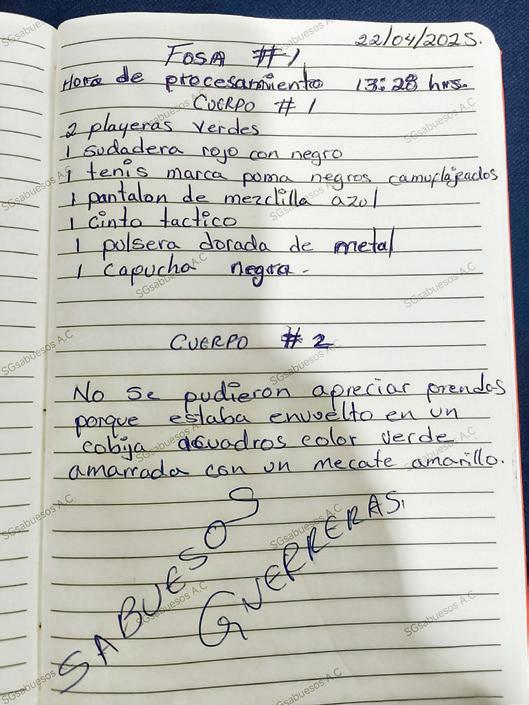 22/04/2025.
FOSA #1
Hora de procesamiento 13:28 hrs.
CUERPO #1
2 playeras verdes
1 sudadera rojo con negro
1 tenis marca poma negros camuflajeados
1 pantalon de mezclilla azul
1 cinto tactico
1 pulsera dorada de metal
1 capucha negra.
CUERPO #2
No se pudieron apreciar prendas
porque estaba envuelto en un
cobija acuadros color verde
amarrada con un mecate amarillo.
SABUESOS
GUERRERAS
SGsabuesos A.C